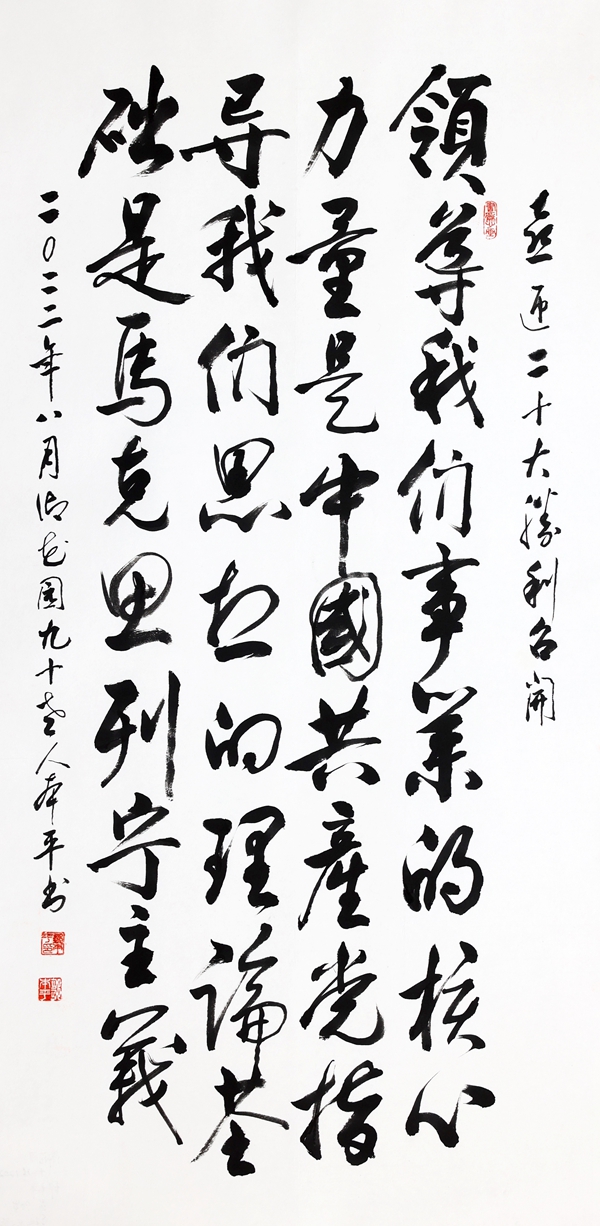 喜迎二十大勝利召開
領導我们事業的核心
力量是中國共產党指
导我们思想的理論基
础是馬克思列宁主義
二〇二二年八月御花园九十老人本平书